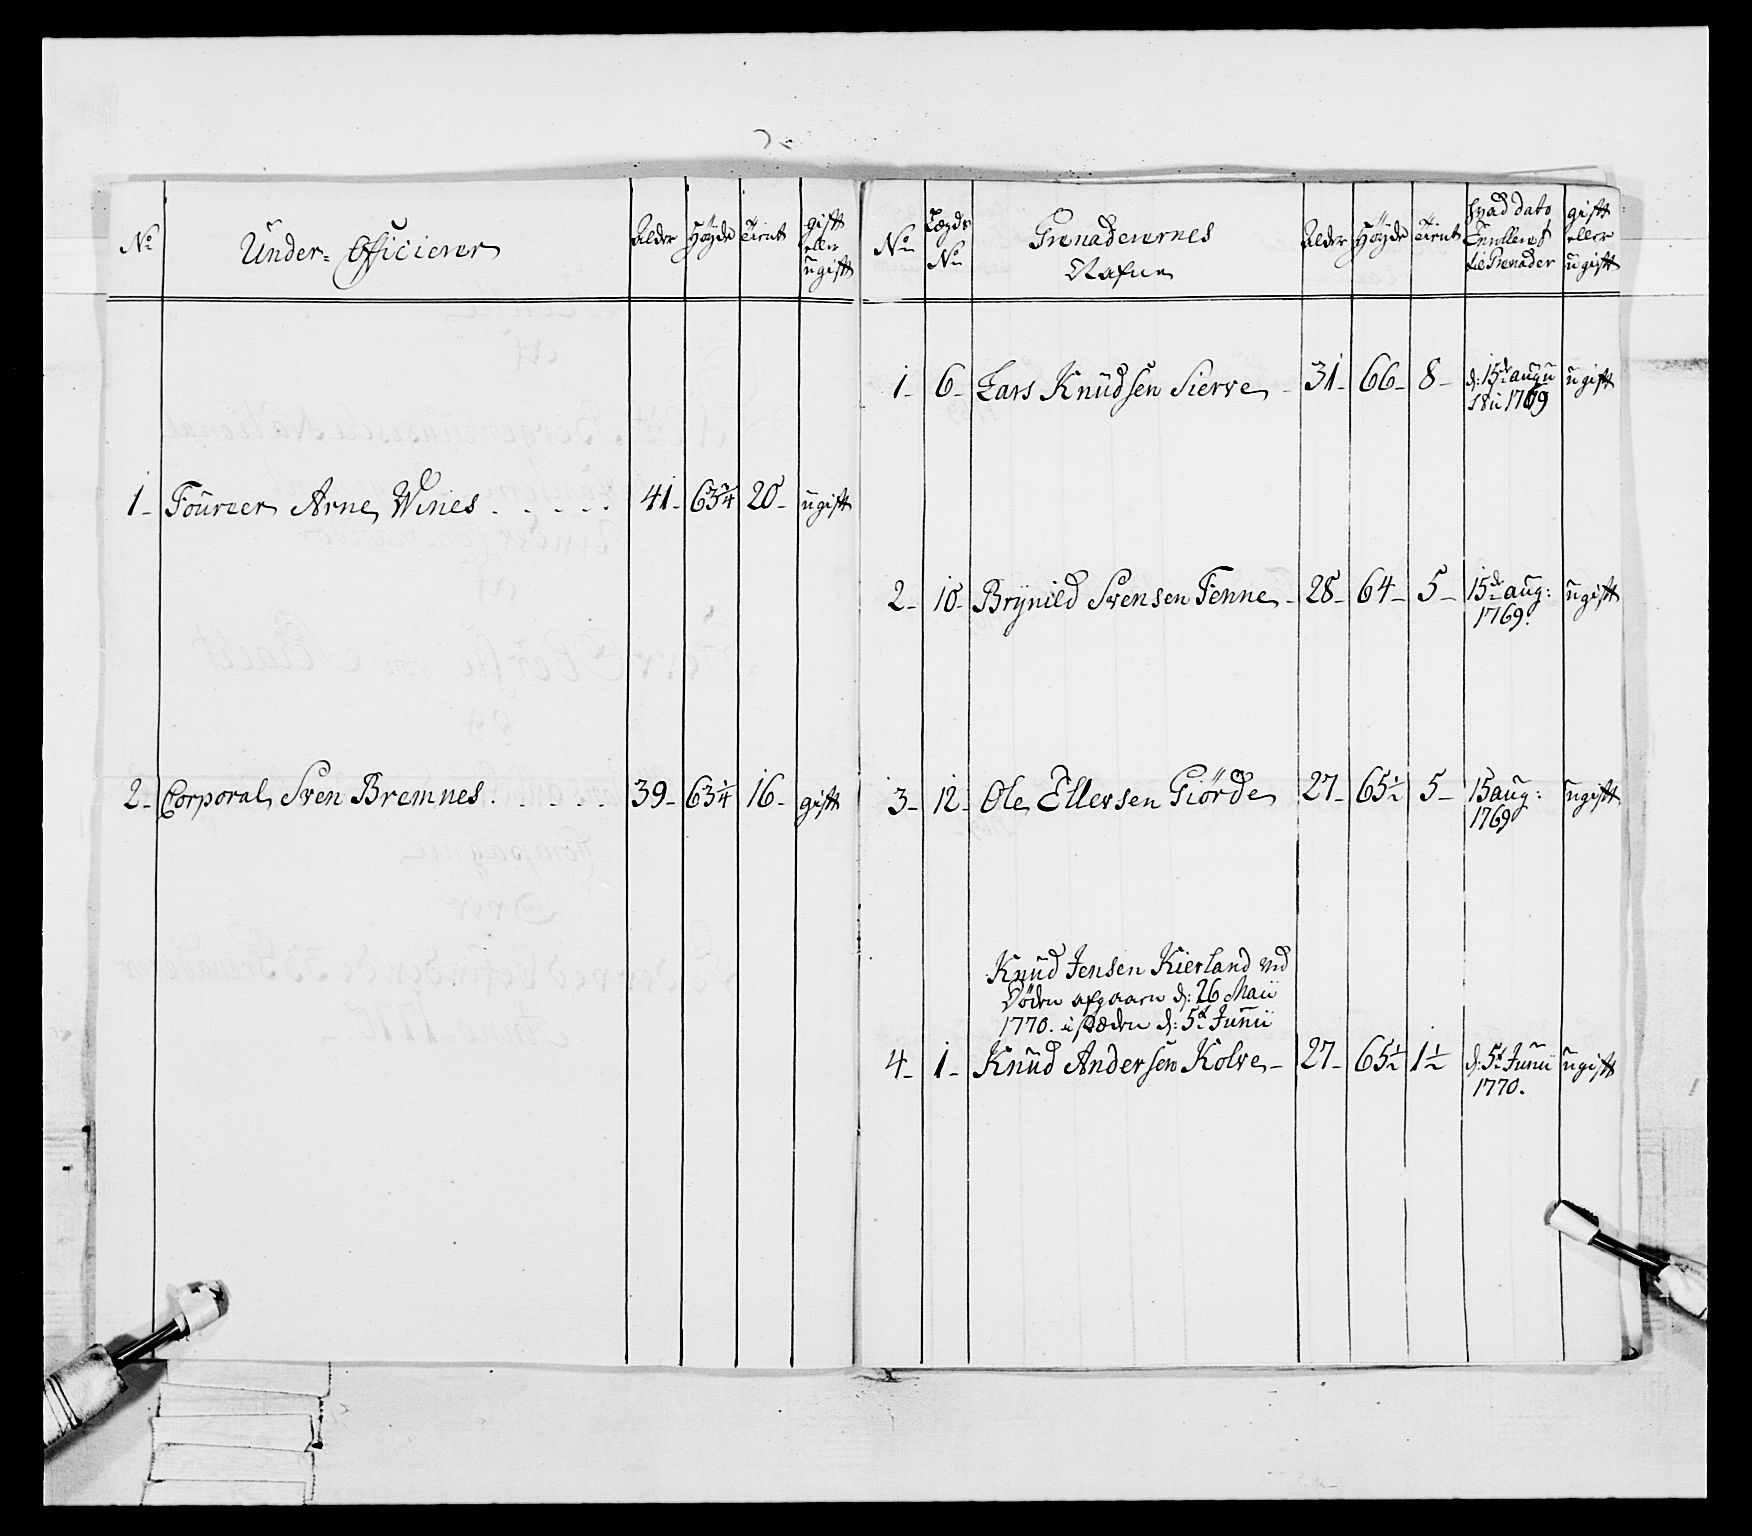 No
Under-Officierer
Alder
Høyde
Tient
gift
eller
ugift
1- Foureer Arne Wines . . . . . 41- 63¾ 20- ugift
2- Corporal Sven Bremnes . . . . . 39- 63¼ 16- gift
No
Lægds
No
Grenaderernes
Nafne
Alder
Høyde
Tient
hvad dato
Enrulleret
til Grenader
gift
eller
ugift
1- 6- Lars Knudsen Sierve - 31- 66- 8- d: 15de augu
sti 1769 ugift
2- 10- Brynild Svensen Tenne - 28- 64- 5- 15de aug:
1769. ugift
3- 12- Ole Ellersen Giørde 27- 65½ 5- 15 aug:
1769 ugift
Knud Jensen Kierland ved
Døden afgaaen d: 26 Maii
1770. i stæden d: 5te Junii
4- 1- Knud Andersen Kolve - 27- 65½ 1½ d: 5te Junii
1770. ugift